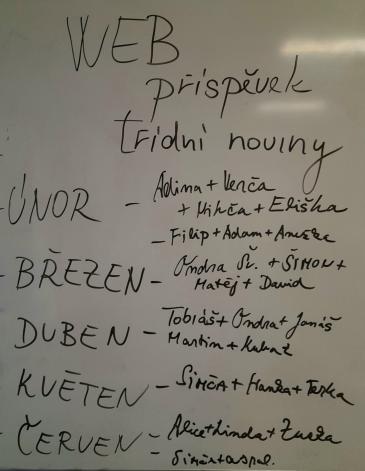 WEB
příspěvek
třídní noviny
- ÚNOR - Adina + Verča
+ Mihča + Eliška
- Filip + Adam + Anežka
- BŘEZEN - Ondra Šv. + ŠIMON +
Matěj + David
DUBEN - Tobiáš + Ondra + Jonáš
Martin + Jakub
- KVĚTEN - SIMČA + Hanka + Terka
- ČERVEN - Alice + Linda + Zuzka
- Simča + a spol.